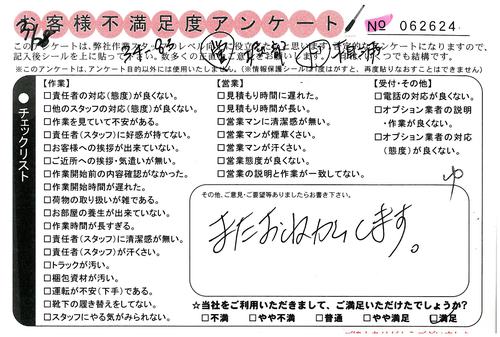 お客様不満足度アンケート
No 062624
※このアンケートは、アンケート目的以外には使用いたしません。(※情報保護シール)は1度はがすと、再度貼りなおすことはできません)
チェックリスト
【作業】
□責任者の対応(態度)が良くない。
□他のスタッフの対応(態度)が良くない。
□作業を見ていて不安がある。
□責任者(スタッフ)に好感が持てない。
□お客様への挨拶が出来ていない。
□ご近所への挨拶・気遣いが無い。
□作業開始前の内容確認がなかった。
□作業開始時間が遅れた。
□荷物の取り扱いが雑である。
□お部屋の養生が出来ていない。
□作業時間が長すぎる。
□責任者(スタッフ)に清潔感が無い。
□責任者(スタッフ)が汗くさい。
□トラックが汚い。
□梱包資材が汚い。
□運転が不安(下手)である。
□靴下の履き替えをしてない。
□スタッフにやる気がみられない。
【営業】
□見積もり時間に遅れた。
□見積もり時間が長い。
□営業マンに清潔感が無い。
□営業マンが煙草くさい。
□営業マンが汗くさい。
□営業態度が良くない。
□営業の説明と作業が一致してない。
【受付・その他】
□電話の対応が良くない。
□オプション業者の説明・作業が良くない。
□オプション業者の対応(態度)が良くない。
その他、ご意見・ご要望等ありましたらお書き下さい。
またおねがいします。
☆当社をご利用いただきまして、ご満足いただけたでしょうか?
□不満 □やや不満 □普通 □やや満足 □満足